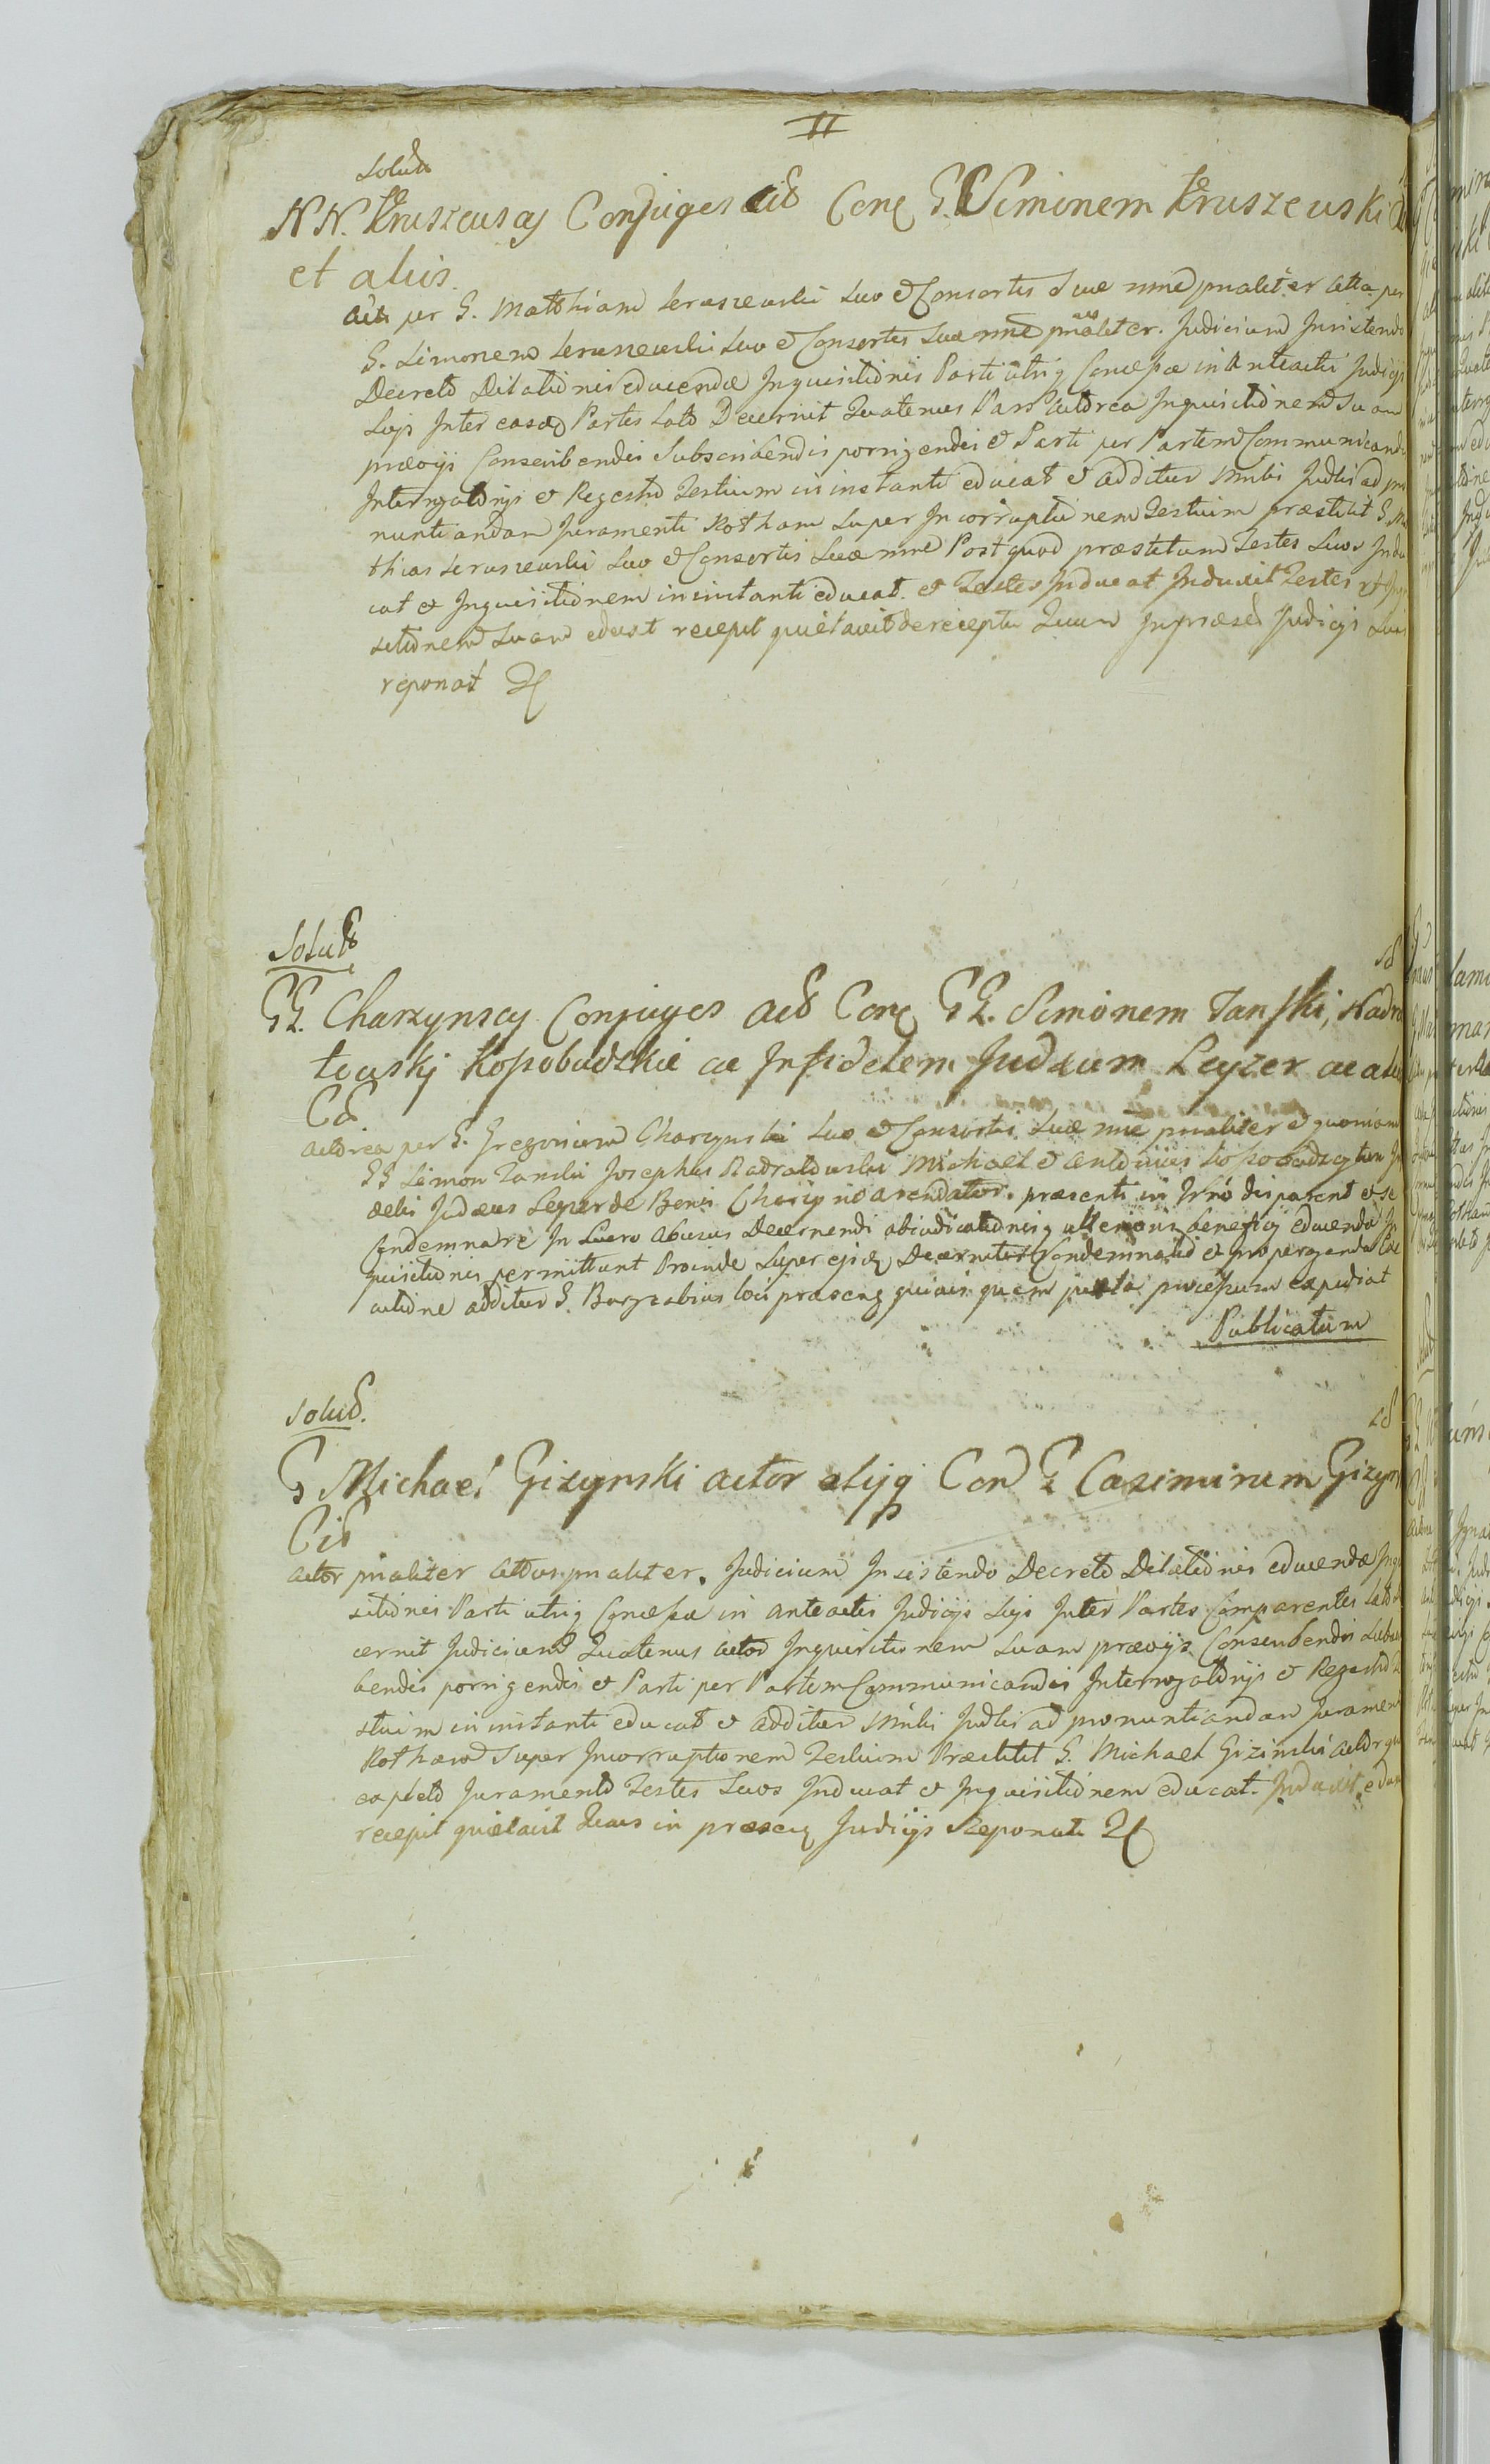 II
Solut
NN. Kruszewscy Conjuges act Con G. Simonem Kruszewski
et alios.
Act per G. Matthiam Kruszewski suo et Consortis suae nne pnaliter Atta per
G. Simonem Kruszewski suo et Consortis suae nne pnaliter. Judicium Insistendo
Decreto Dilationis educendae Inquisitionis Parti utriq Concessae in Anteactis Judicijs
suis Inter easdem Partes Lato Decernit Quatenus Pars Actorea Inquisitionem suam
praevijs Conscribendis Subscribendis porrigendis et Parti per Partem Communicandis
Interrogatorijs et Regestro Testium in instanti educat et additur Mnlis Judlis ad pro
nuntiandam Juramenti Rotham super Incorruptionem Testium praestitit G. Mat
thias Kruszewski suo et Consortis suae nne Post quod praestitum Testes suos Indu
cat et Inquisitionem in instanti educat. et Testes Inducat Induxit Testes et Inqui
sitionem suam eduxit recepit quietavit de recepta Quam In praesen Judicijs suis
reponat
Solut
GG. Charzynscy Conjuges act Con GG. Simonem Tanski, Nadra
towski Kossobudzkie ac Infidelem Judaeum Leyzer ac alios
Cit
Actorea per G. Gregorium Charzynski suo et Consortis suae nne pnaliter et quoniam
GG Simon Tanski Josephus Nadratowski Michael et Antonius Kossobudzcy tum Infi
delis Judaeus Leyzer de Bonis Charzyno arendator. praesenti in Trno disparent et se
Condemnare In Lucro Abusus Decernendi abiudicationisq ulterioris beneficij educendae In
quisitionis permittunt Proinde super ejsd Decernitur Condemnatio et pro peraganda Exe
cutione additur G. Burgrabius loci praesens quivis quem juxta processum expediat
Publicatum
Solut.
G Michael Gizynski actor alijq Con G Casimirum Gizyns
Cit
Actor pnaliter Attus pnaliter. Judicium Insistendo Decreto Dilationis educendae Inqui
sitionis Parti utriq Concessae in anteactis Judicijs suis Inter Partes Comparentes lato de
cernit Judicium Quatenus Actor Inquisitionem suam praevijs Conscribendis Subscri
bendis porrigendis et Parti per Partem Communicandis Interrogatorijs et Regestro Te
stium in instanti educat et additur Mnlis Judlis ad pronuntiandam Juramenti
Rotham super Incorruptionem Testium Praestitit G. Michael Gizinski actor quo
expleto Juramento Testes suos Inducat et Inquisitionem educat. Induxit eduxit
recepit quietavit Quas in praesen Judicijs Reponat